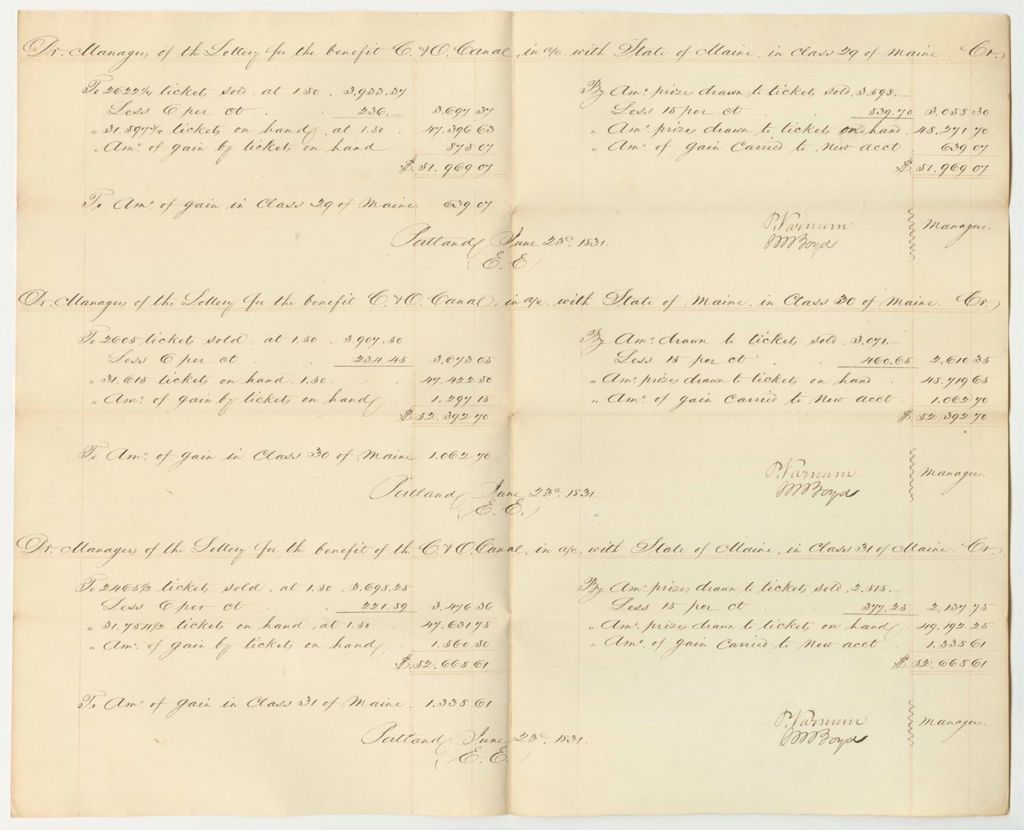 Dr. Managers of the Lottery for the benefit C. & O. Canal, in a/c with State of Maine, in Class 29 of Maine. Cr.
To 2622 1/4 tickets sold, at 1.50 . 3.933.37
Less 6 per ct 236.— 3.697 37
" 31.597 3/4 tickets on hand, at 1.50 . 47.396 63
" Amt. of gain by tickets on hand 875 07
$. 51.969 07
To Amt. of gain in Class 29 of Maine 639 07
By Amt. prizes drawn to tickets sold, 3.598.—
Less 15 per ct 539.70 3.058 30
" Amt. prizes drawn to tickets on hand . 48.271 70
" Amt. of gain Carried to New acct . 639 07
$. 51.969 07
Portland, June 23d. 1831.
E. E.
P. Varnum
W Boyd
Managers.
Dr. Managers of the Lottery for the benefit C. & O. Canal, in a/c. with State of Maine, in Class 30 of Maine. Cr.
To 2605 tickets sold, at 1.50 . 3.907.50
Less 6 per ct 234.45 3.673 05
" 31.615 tickets on hand. 1.50 . 47.422 50
" Amt. of gain by tickets on hand, 1.297 15
$. 52.392 70
To Amt. of gain in Class 30 of Maine 1.062 70
By Amt. drawn to tickets sold. 3.071.—
Less 15 per ct 460.65 2.610 35
" Amt. prizes drawn to tickets on hand . 48.719 65
" Amt. of gain Carried to New acct . 1.062 70
$. 52.392 70
Portland, June 23d. 1831.
E. E.
P. Varnum
W Boyd
Managers.
Dr. Managers of the Lottery for the benefit of the C. & O. Canal, in a/c, with State of Maine, in Class 31 of Maine. Cr.
To 2463 1/2 tickets sold, at 1.50 . 3.695.25
Less 6 per ct 221.89 3.473 36
" 31.754 1/2 tickets on hand, at 1.50 . 47.631 75
" Amt. of gain by tickets on hand, 1.560 50
$. 52.665 61
To Amt. of gain in Class 31 of Maine. 1.335 61
By Amt. prizes drawn to tickets sold, 2.515.—
Less 15 per ct 377.25 2.137 75
" Amt. prizes drawn to tickets on hand, 49.192 25
" Amt. of gain Carried to New acct . 1.335 61
$ 52.665 61
Portland, June 23d. 1831.
E. E.
P. Varnum
W Boyd
Managers.